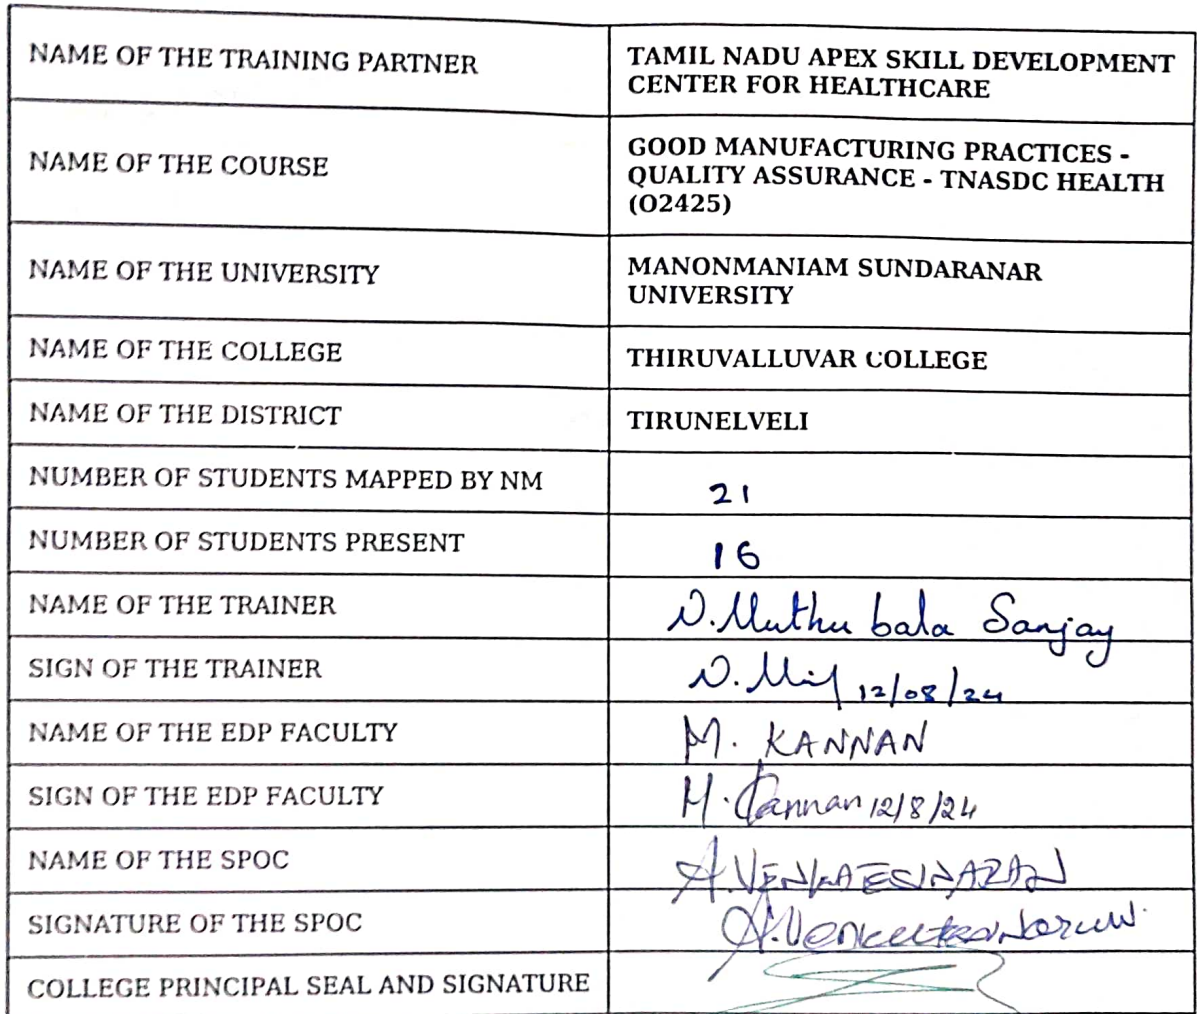 NAME OF THE TRAINING PARTNER
TAMIL NADU APEX SKILL DEVELOPMENT
CENTER FOR HEALTHCARE
NAME OF THE COURSE
GOOD MANUFACTURING PRACTICES -
QUALITY ASSURANCE - TNASDC HEALTH
(O2425)
NAME OF THE UNIVERSITY
MANONMANIAM SUNDARANAR
UNIVERSITY
NAME OF THE COLLEGE
THIRUVALLUVAR COLLEGE
NAME OF THE DISTRICT
TIRUNELVELI
NUMBER OF STUDENTS MAPPED BY NM
21
NUMBER OF STUDENTS PRESENT
16
NAME OF THE TRAINER
N.Muthu bala Sanjay
SIGN OF THE TRAINER
N. 12/08/24
NAME OF THE EDP FACULTY
M. KANNAN
SIGN OF THE EDP FACULTY
M. Kannan 12/8/24
NAME OF THE SPOC
A.
SIGNATURE OF THE SPOC
A.
COLLEGE PRINCIPAL SEAL AND SIGNATURE